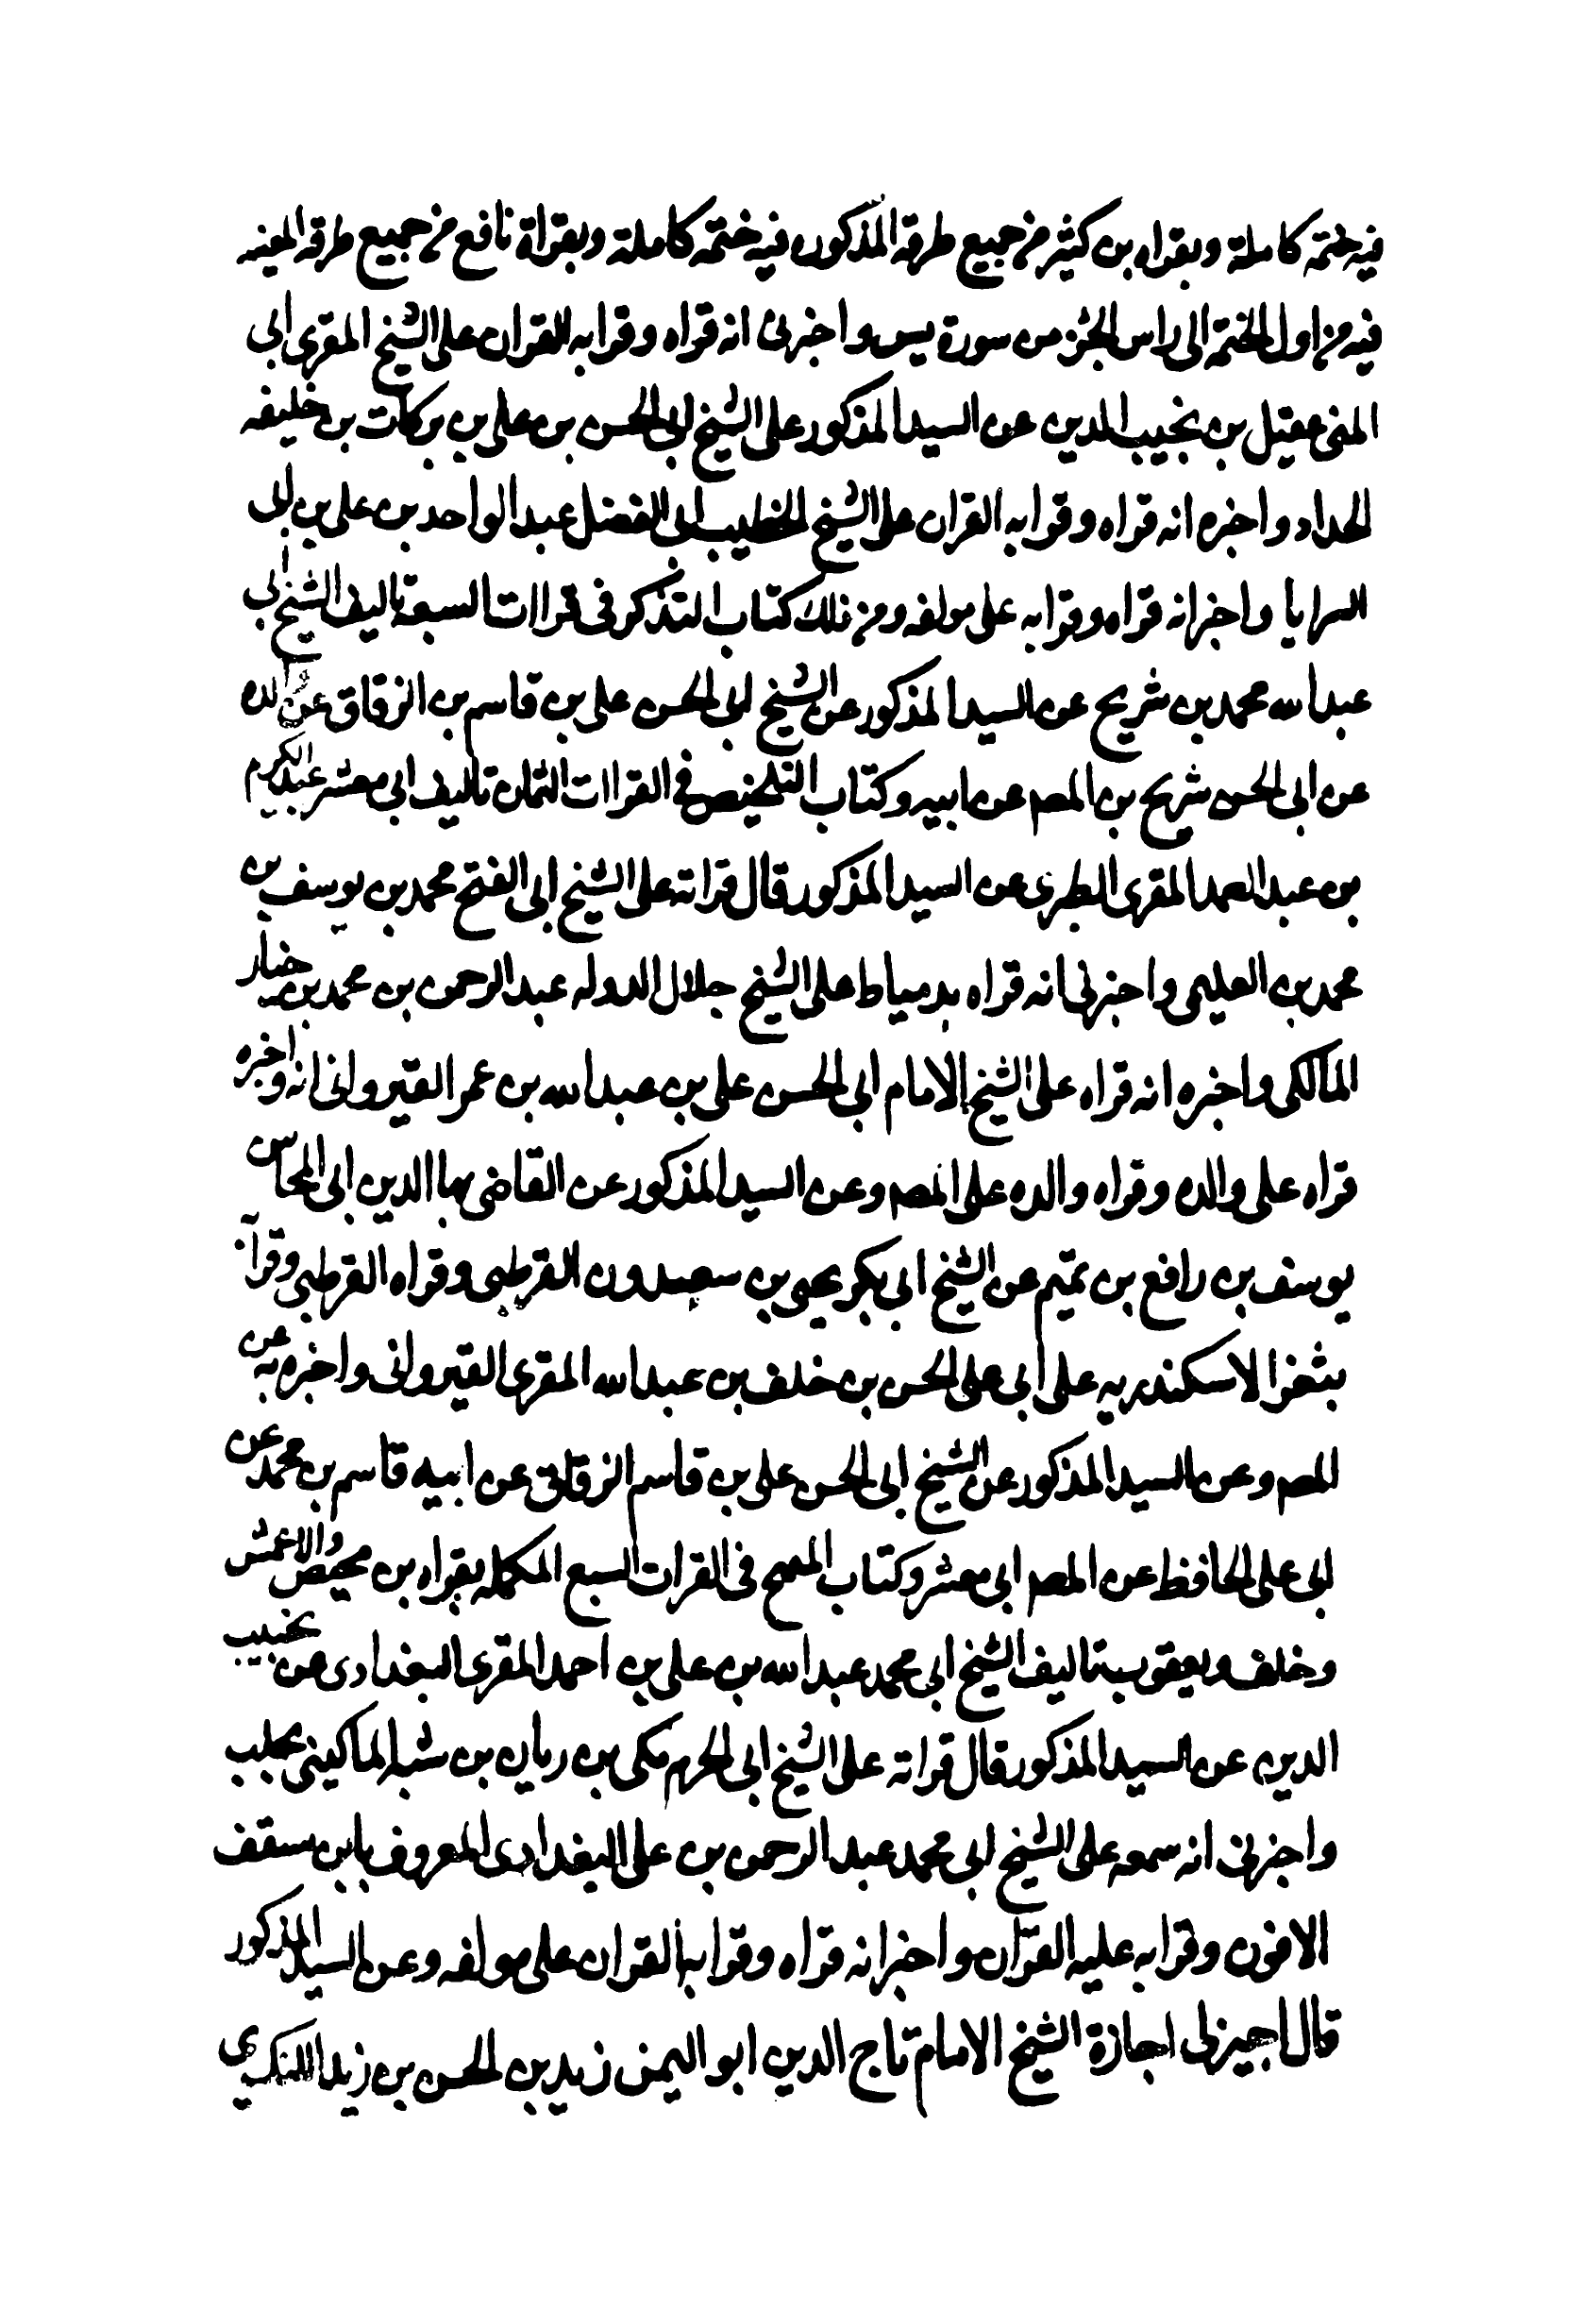 فيه ختمة كاملة وبقراه بن كثير من جميع طرقه المذكوره فيه ختمه كاملة وبقراة نافع من جميع طرقه المعينه
فيه من اول الختمة الى راس الجز من سورة يس واخبرنى انه قراه وقرا به القران على الشيخ المقرى ابى
المنى عقيل بن نجيب الدين عن السيد المذكور على الشيخ ابى الحسن بن على بن بركات بن خليفه
الحداد واخبره انه قراه وقرا به القران على الشيخ الخطيب ابى الفضل عبد الواحد بن على بن ابى
السرايا واخبر انه قراه وقرا به على مولفه ومن ذلك كتاب التذكر فى قراات السبعة تاليف الشيخ ابى
عبد الله محمد بن شريح عن السيد المذكور عن الشيخ ابى الحسن على بن قاسم بن الزقاق عن والده
عن ابى الحسن شريح بن المصـ عن ابيه وكتاب التلخيص فى القراات الثمان تاليف ابى معشر عبد الكريم
بن عبد الصمد المقرى الطبرى عن السيد المذكور قال قراته على الشيخ ابى الفتح محمد بن يوسف بن
محمد بن العليمى واخبرنى انه قراه بدمياط على الشيخ جلال الدوله عبد الرحمن بن محمد بن خيار
المالكى واخبره انه قراه على الشيخ الامام ابى الحسن على بن عبد الله بن عمر القيروانى انه واخبره
قراه على والده وقراه والده على المصـ وعن السيد المذكور عن القاضى بها الدين ابى المحاسن
يوسف بن رافع بن تميم عن الشيخ ابى بكر يحيى بن سعيدون القرطبى وقراه القرطبى وقرا به
بثغر الاسكندريه على ابى على الحسن بن خلف بن عبد الله المقرى القيروانى واخبره به عن
المصـ وعن السيد المذكور عن الشيخ ابى الحسن على بن قاسم الزقاق عن ابيه قاسم بن محمد عن
ابى على الحافظ عن المصـ ابى معشر وكتاب المبهج فى القرات السبع المكمله بقراه بن محيصن والاعمش
وخلف ويعقوب تاليف الشيخ ابى محمد عبد الله بن على بن احمد المقرى البغدادى عن نجيب
الدين عن السيد المذكور قال قراته على الشيخ ابى الحرم مكى بن ريان بن شبه الماكسينى بحلب
واخبرنى انه سمعه على الشيخ ابى محمد عبد الرحمن بن على البغدادى المعروف بابن سقف
الافون وقرا به عليه القران واخبر انه قراه وقرا به القران على مولفه وعن السيد المذكور
قال اجيز لى اجازة الشيخ الامام تاج الدين ابو اليمن زيد بن الحسن بن زيد الكندى